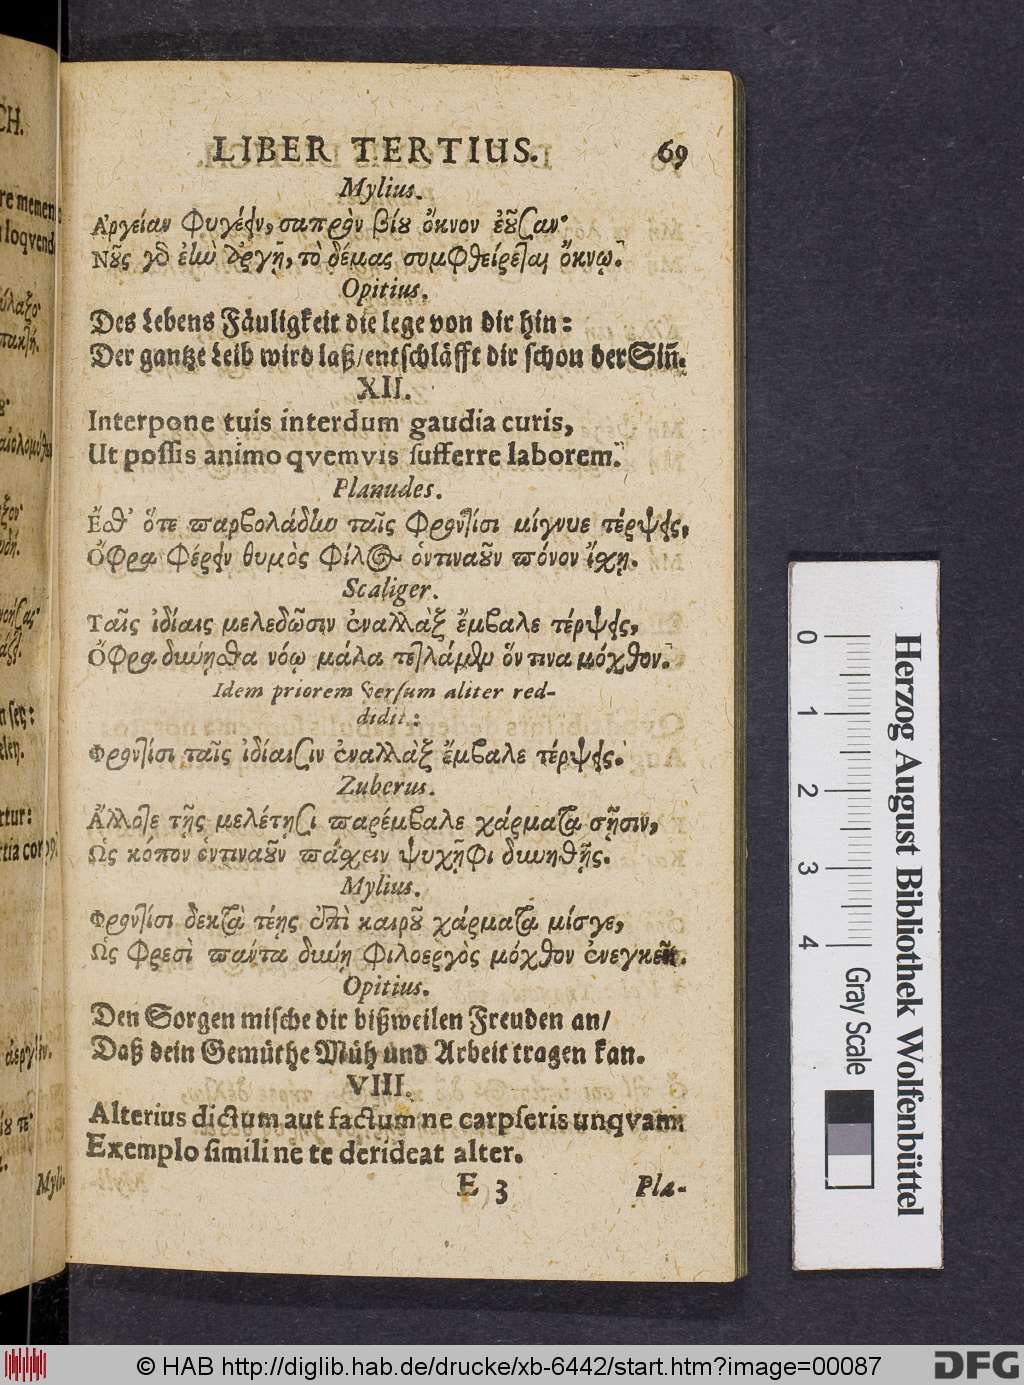 LIBER TERTIUS. 69
Mylius.
Ἀργείαν Φυγέειν, σαπρὸν βίου ὄκνον ἐοῦσαν·
Νοῦς γδ ἐνὶ ὀργῇ, τὸ δέμας συμΦθείρεται ὄκνῳ.
Opitius.
Des Lebens Fäuligkeit die lege von dir hin:
Der gantze Leib wird laß/entschläfft dir schon der Siñ.
XII.
Interpone tuis interdum gaudia curis,
Ut possis animo qvemvis sufferre laborem.
Planudes.
Ἔσθ' ὅτε παρβολάδην ταῖς Φροντίσι μίγνυε τέρψεις,
ὌΦρα Φέρειν θυμὸς Φίλος ὁντιναοῦν πόνον ἴχῃ.
Scaliger.
Ταῖς ἰδίαις μελεδῶσιν ἐναλλὰξ ἔμβαλε τέρψεις,
ὌΦρα δυνήσθα νόῳ μάλα τετλάμεν ὅντινα μόχθον.
Idem priorem versum aliter red-
didit:
Φροντίσι ταῖς ἰδίαισιν ἐναλλὰξ ἔμβαλε τέρψεις.
Zuberus.
Ἄλλοτε τῇς μελέτῃσι παρέμβαλε χάρματα σῇσιν,
Ὡς κόπον ὁντιναοῦν πάσχειν ψυχῇΦι δυνηθῇς.
Mylius.
Φροντίσι δεκτὰ τέῃς ἐπὶ καιροῦ χάρματα μίσγε,
Ὡς Φρεσὶ πάντα δυνή Φιλοεργὸς μόχθον ἐνεγκεῖν.
Opitius.
Den Sorgen mische dir bißweilen Freuden an/
Daß dein Gemüthe Müh und Arbeit tragen kan.
VIII.
Alterius dictum aut factum ne carpseris unqvam:
Exemplo simili ne te derideat alter.
E 3 Pla-
0 1 2 3 4 Gray Scale
Herzog August Bibliothek Wolfenbüttel
© HAB http://diglib.hab.de/drucke/xb-6442/start.htm?image=00087
DFG